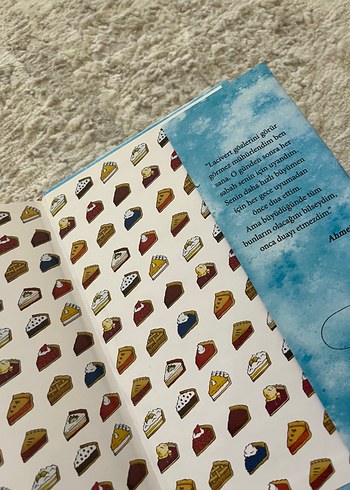 "Lacivert gözlerini görür
görmez mühürlendim ben
sana. O günden sonra her
sabah senin için uyandım.
Senin daha hızlı büyümen
için her gece uyumadan
önce dua ettim.
Ama büyüdüğünde tüm
bunların olacağını bilseydim,
onca duayı etmezdim."